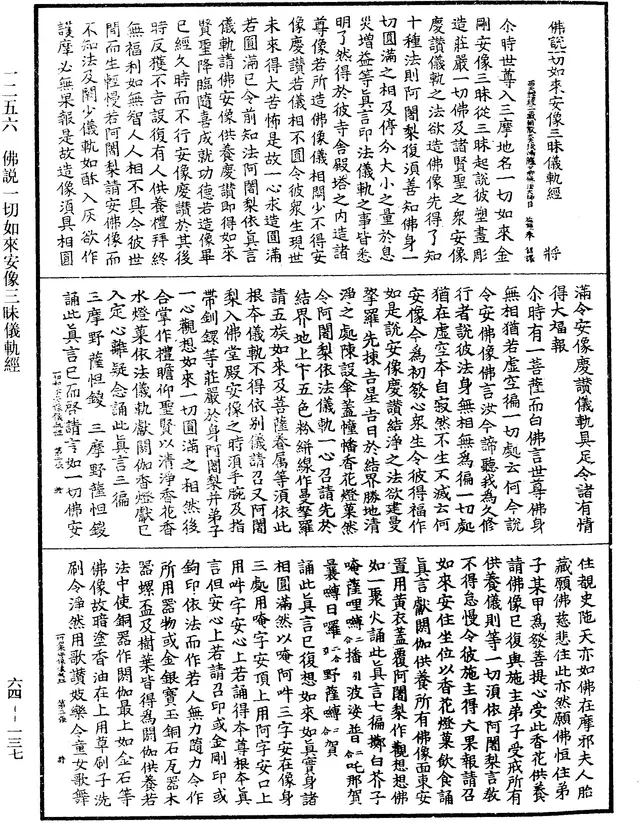 佛說一切如來安像三昧儀軌經　將
尒時世尊入三摩地名一切如來金
剛安像三昧從三昧起說彼塑畫彫
造莊嚴一切佛及諸賢聖之衆安像
慶讚儀軌之法欲造佛像先得了知
十種法則阿闍梨復須善知佛身一
切圓滿之相及停分大小之量於息
災增益等真言印法儀軌之事皆悉
明了然得於彼寺舍殿塔之內造諸
尊像若所造佛像儀相闕少不得安
像慶讚若儀相不圓令彼衆生現世
未來得大苦怖是故一心求造圓滿
若圓滿已令前知法阿闍梨依真言
儀軌請佛安像供養慶讚即得如來
賢聖降臨隨喜成就功德若造像畢
已經久時而不行安像慶讚於其後
時反獲不吉設復有人供養禮拜終
無福利如無智人人相不具令彼世
間而生輕慢若阿闍梨請安佛像而
不知法及闕少儀軌如酥入灰欲作
護摩必無果報是故造像須具相圓
滿令安像慶讚儀軌具足令諸有情
得大福報
尒時有一菩薩而白佛言世尊佛身
無相猶若虛空徧一切處云何今說
令安佛像佛言汝今諦聽我為久修
行者說彼法身無相無為徧一切處
猶在虛空本自寂然不生不滅云何
安像今為初發心衆生令彼得福作
如是說安像慶讚結淨之法欲建曼
拏羅先揀吉星吉日於結界勝地清
淨之處陳設傘蓋幢幡香花燈菓然
令阿闍梨依法儀軌一心召請先於
結界地上下五色粉絣線作曼拏羅
請五族如來及菩薩眷屬等須依此
根本儀軌不得依別儀請召又阿闍
梨入佛堂殿安像之時須手腕及指
帶釧鐶等莊嚴於身阿闍梨并弟子
一心觀想如來一切圓滿之相然後
合掌作禮瞻仰聖賢以清淨香花香
水燈菓依法儀軌獻閼伽香燈獻已
入定心離疑念誦此真言三徧
三摩野薩怛鑁　三摩野薩怛鑁
誦此真言已而啓請言如一切佛安
住覩史陁天亦如佛在摩耶夫人胎
藏願佛慈悲住此亦然願佛恒住弟
子某甲為發菩提心受此香花供養
請佛像已復與施主弟子受戒所有
供養儀則等一切須依阿闍梨言教
不得怠慢令彼施主得大果報請召
如來安住坐位以香花燈菓飲食誦
真言獻閼伽供養所有佛像面東安
置用黃衣蓋覆阿闍梨作觀想想佛
如一聚火誦此真言七徧擲白芥子
唵薩哩嚩二合播引波姿普二合吒那賀
曩嚩日囉二合野薩嚩二合賀
誦此真言已復想如來如真實身諸
相圓滿然以唵阿吽三字安在像身
三處用唵字安頂上用阿字安口上
用吽字安心上若誦得本尊根本真
言但安心上若請召印或金剛印或
鉤印依法而作若人無力隨力令作
所用器物或金銀寶玉銅石瓦器木
器螺盃及樹葉皆得為閼伽供養若
法中使銅器作閼伽最上如金石等
佛像故暗塗香油在上用草刷子洗
刷令淨然用歌讚妓樂令童女歌舞
一二五六　佛說一切如來安像三昧儀軌經
六四－一三七